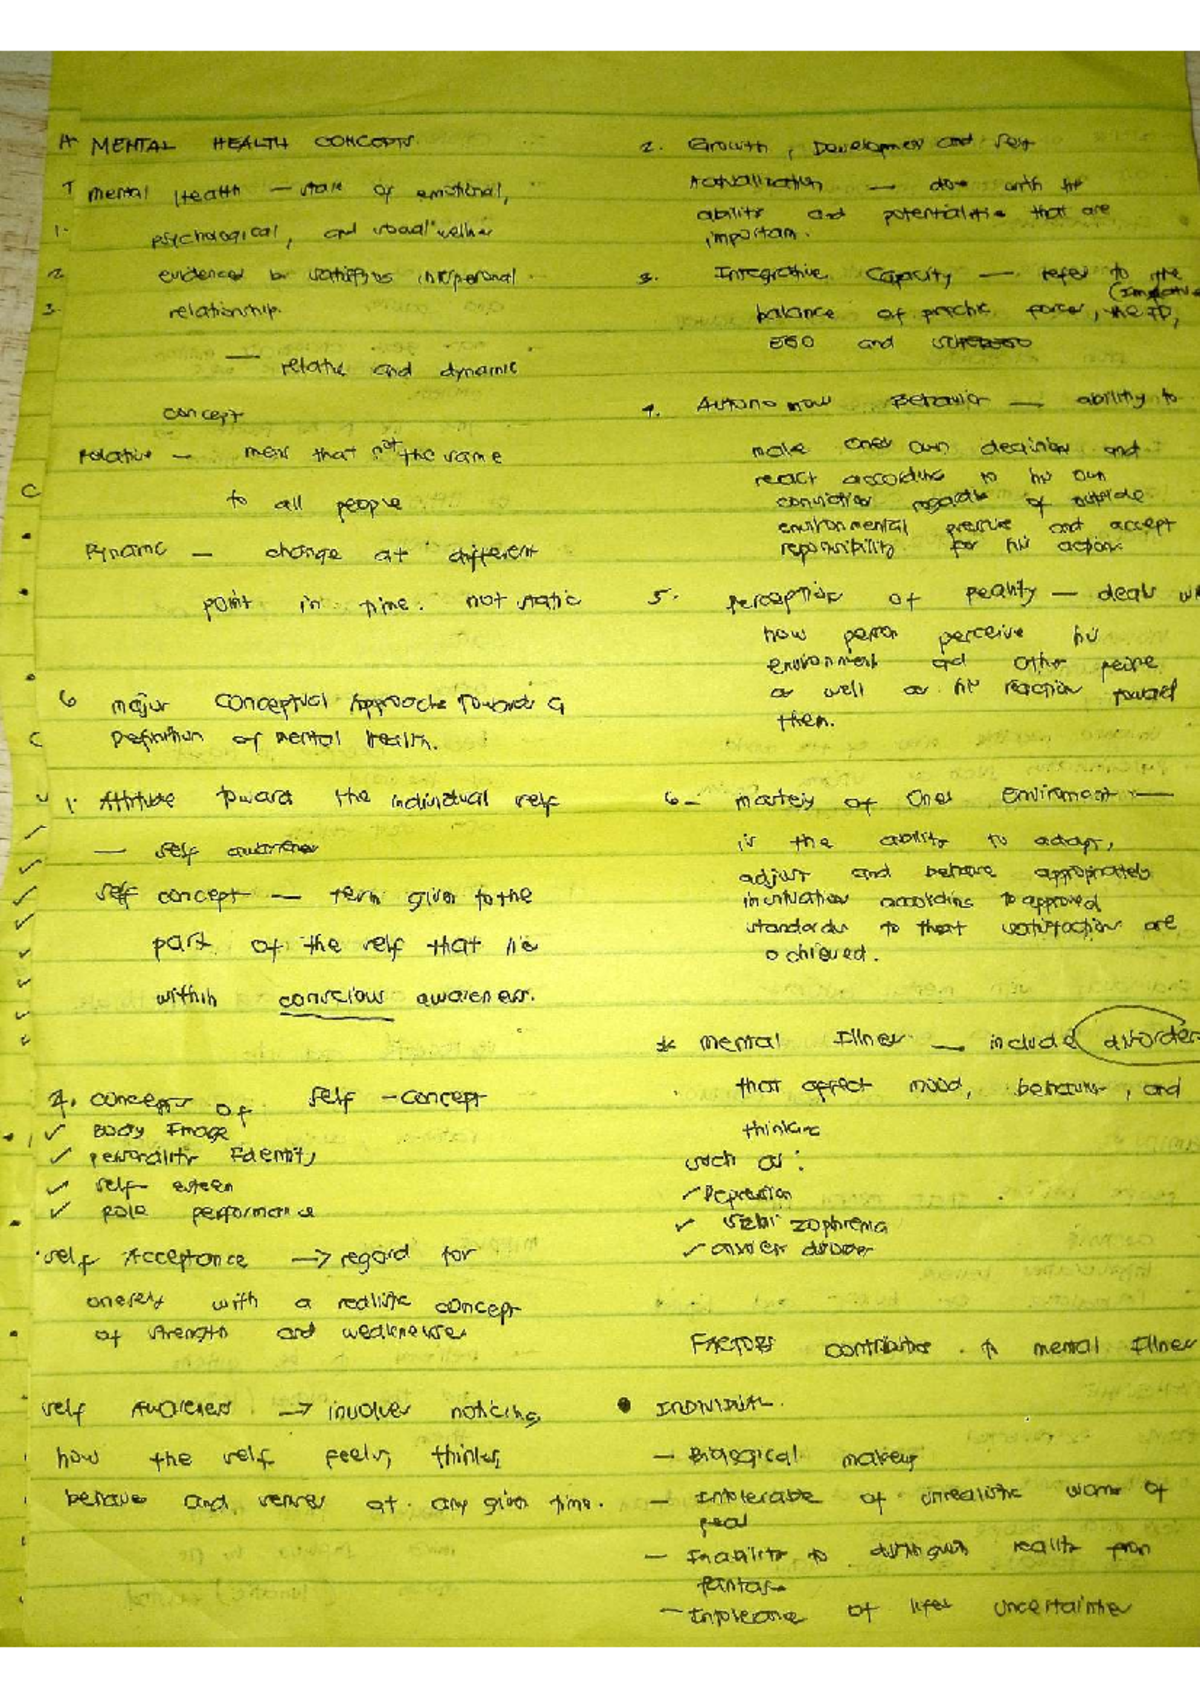 MENTAL HEALTH CONCEPTS
Mental Health — state of emotional,
psychological, and social wellne
evidenced by satisfying interpersonal
relationship.
— relative and dynamic
concept
Relative — mens that not the same
to all people
Dynamic — change at different
point in time. not static
6 major conceptual Approache Towards a
Definition of mental Health.
1. Attitude toward the individual self
— self awarenes
self concept — term given to the
part of the self that lie
within conscious awareness.
4. concepts of self-concept
✓ Body Image
✓ personality Identity
✓ self esteem
✓ role performance
self Acceptance → regard for
oneself with a realistic concept
of strength and weaknesses
self Awareness → involves noticing
how the self feels, thinks,
behave and senses at any given time.
2. Growth, Development and Self
Actualization — do with the
ability and potentialitie that are
important.
3. Integrative Capacity — refer to the
balance of psychic forces, the ID,
EGO and
4. Autonomous Behavior — ability to
make ones own decision and
react according to his own
conviction regardless of outside
environmental pressure and accept
responsibility for his action.
5. Perception of Reality — deals w
how person perceive his
environment and other people
as well as his reaction toward
them.
6 – mastery of ones environment —
is the ability to adapt,
adjust and behave appropriately
in situation according to approved
standards so that satisfaction are
achieved.
* mental Illness — include disorder
that affect mood, behavior, and
thinking
such as:
✓ Depression
✓ schizophrenia
✓ anxiety disorder
FACTORS contributes to mental Illness
• INDIVIDUAL.
— Biological makeup
— Intolerable of unrealistic worries of
— Inability to distinguish reality from
fantasy
— Intolerance of lifes uncertainties